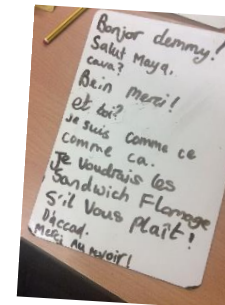 Bonjor demmy!
Salut Maya,
cava?
Bein merci!
et toi?
Je suis comme ce
comme ca.
Je voudrais les
Sandwich Flomage
S'il vous plaît!
D'accad.
Merci Au revoir!